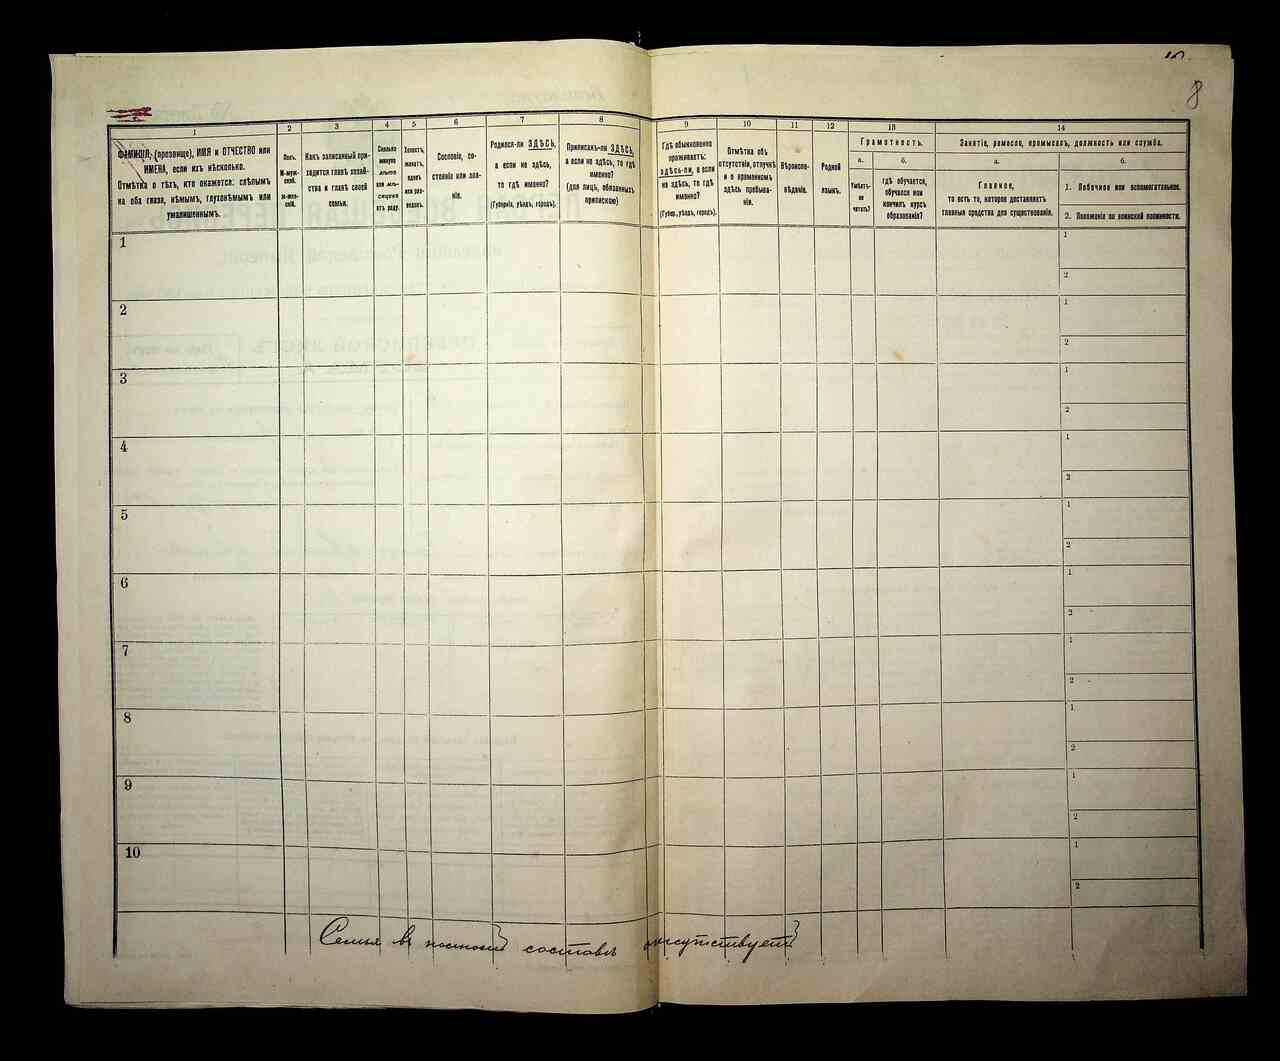 8
1
2
3
4
5
6
7
8
9
10
11
12
13
14
ФАМИЛІЯ, (прозвище), ИМЯ и ОТЧЕСТВО или
ИМЕНА, если ихъ нѣсколько.
Отмѣтка о тѣхъ, кто окажется: слѣпымъ
на оба глаза, нѣмымъ, глухонѣмымъ или
умалишеннымъ.
Полъ.
М-муж-
ской.
Ж-жен-
скій.
Какъ записанный при-
ходится главѣ хозяй-
ства и главѣ своей
семьи.
Сколько
минуло
лѣтъ
или мѣ-
сяцевъ
отъ роду.
Холостъ,
женатъ,
вдовъ
или раз-
веденъ.
Сословіе, со-
стояніе или зва-
ніе.
Родился-ли ЗДѢСЬ,
а если не здѣсь,
то гдѣ именно?
(Губернія, уѣздъ, городъ).
Приписанъ-ли ЗДѢСЬ,
а если не здѣсь, то гдѣ
именно?
(для лицъ, обязанныхъ
припискою)
Гдѣ обыкновенно
проживаетъ:
здѣсь-ли, а если
не здѣсь, то гдѣ
именно?
(Губер., уѣздъ, городъ).
Отмѣтка объ
отсутствіи, отлучкѣ
и о временномъ
здѣсь пребыва-
ніи.
Вѣроиспо-
вѣданіе.
Родной
языкъ.
Грамотность.
а.
Умѣетъ-
ли
читать?
б.
гдѣ обучается,
обучался или
кончилъ курсъ
образованія?
Занятіе, ремесло, промыселъ, должность или служба.
а.
Главное,
то есть то, которое доставляетъ
главныя средства для существованія.
б.
1. Побочное или вспомогательное.
2. Положеніе по воинской повинности.
1
1
2
2
1
2
3
1
2
4
1
2
5
1
2
6
1
2
7
1
2
8
1
2
9
1
2
10
1
2
Семья въ полномъ составѣ отсутствуетъ